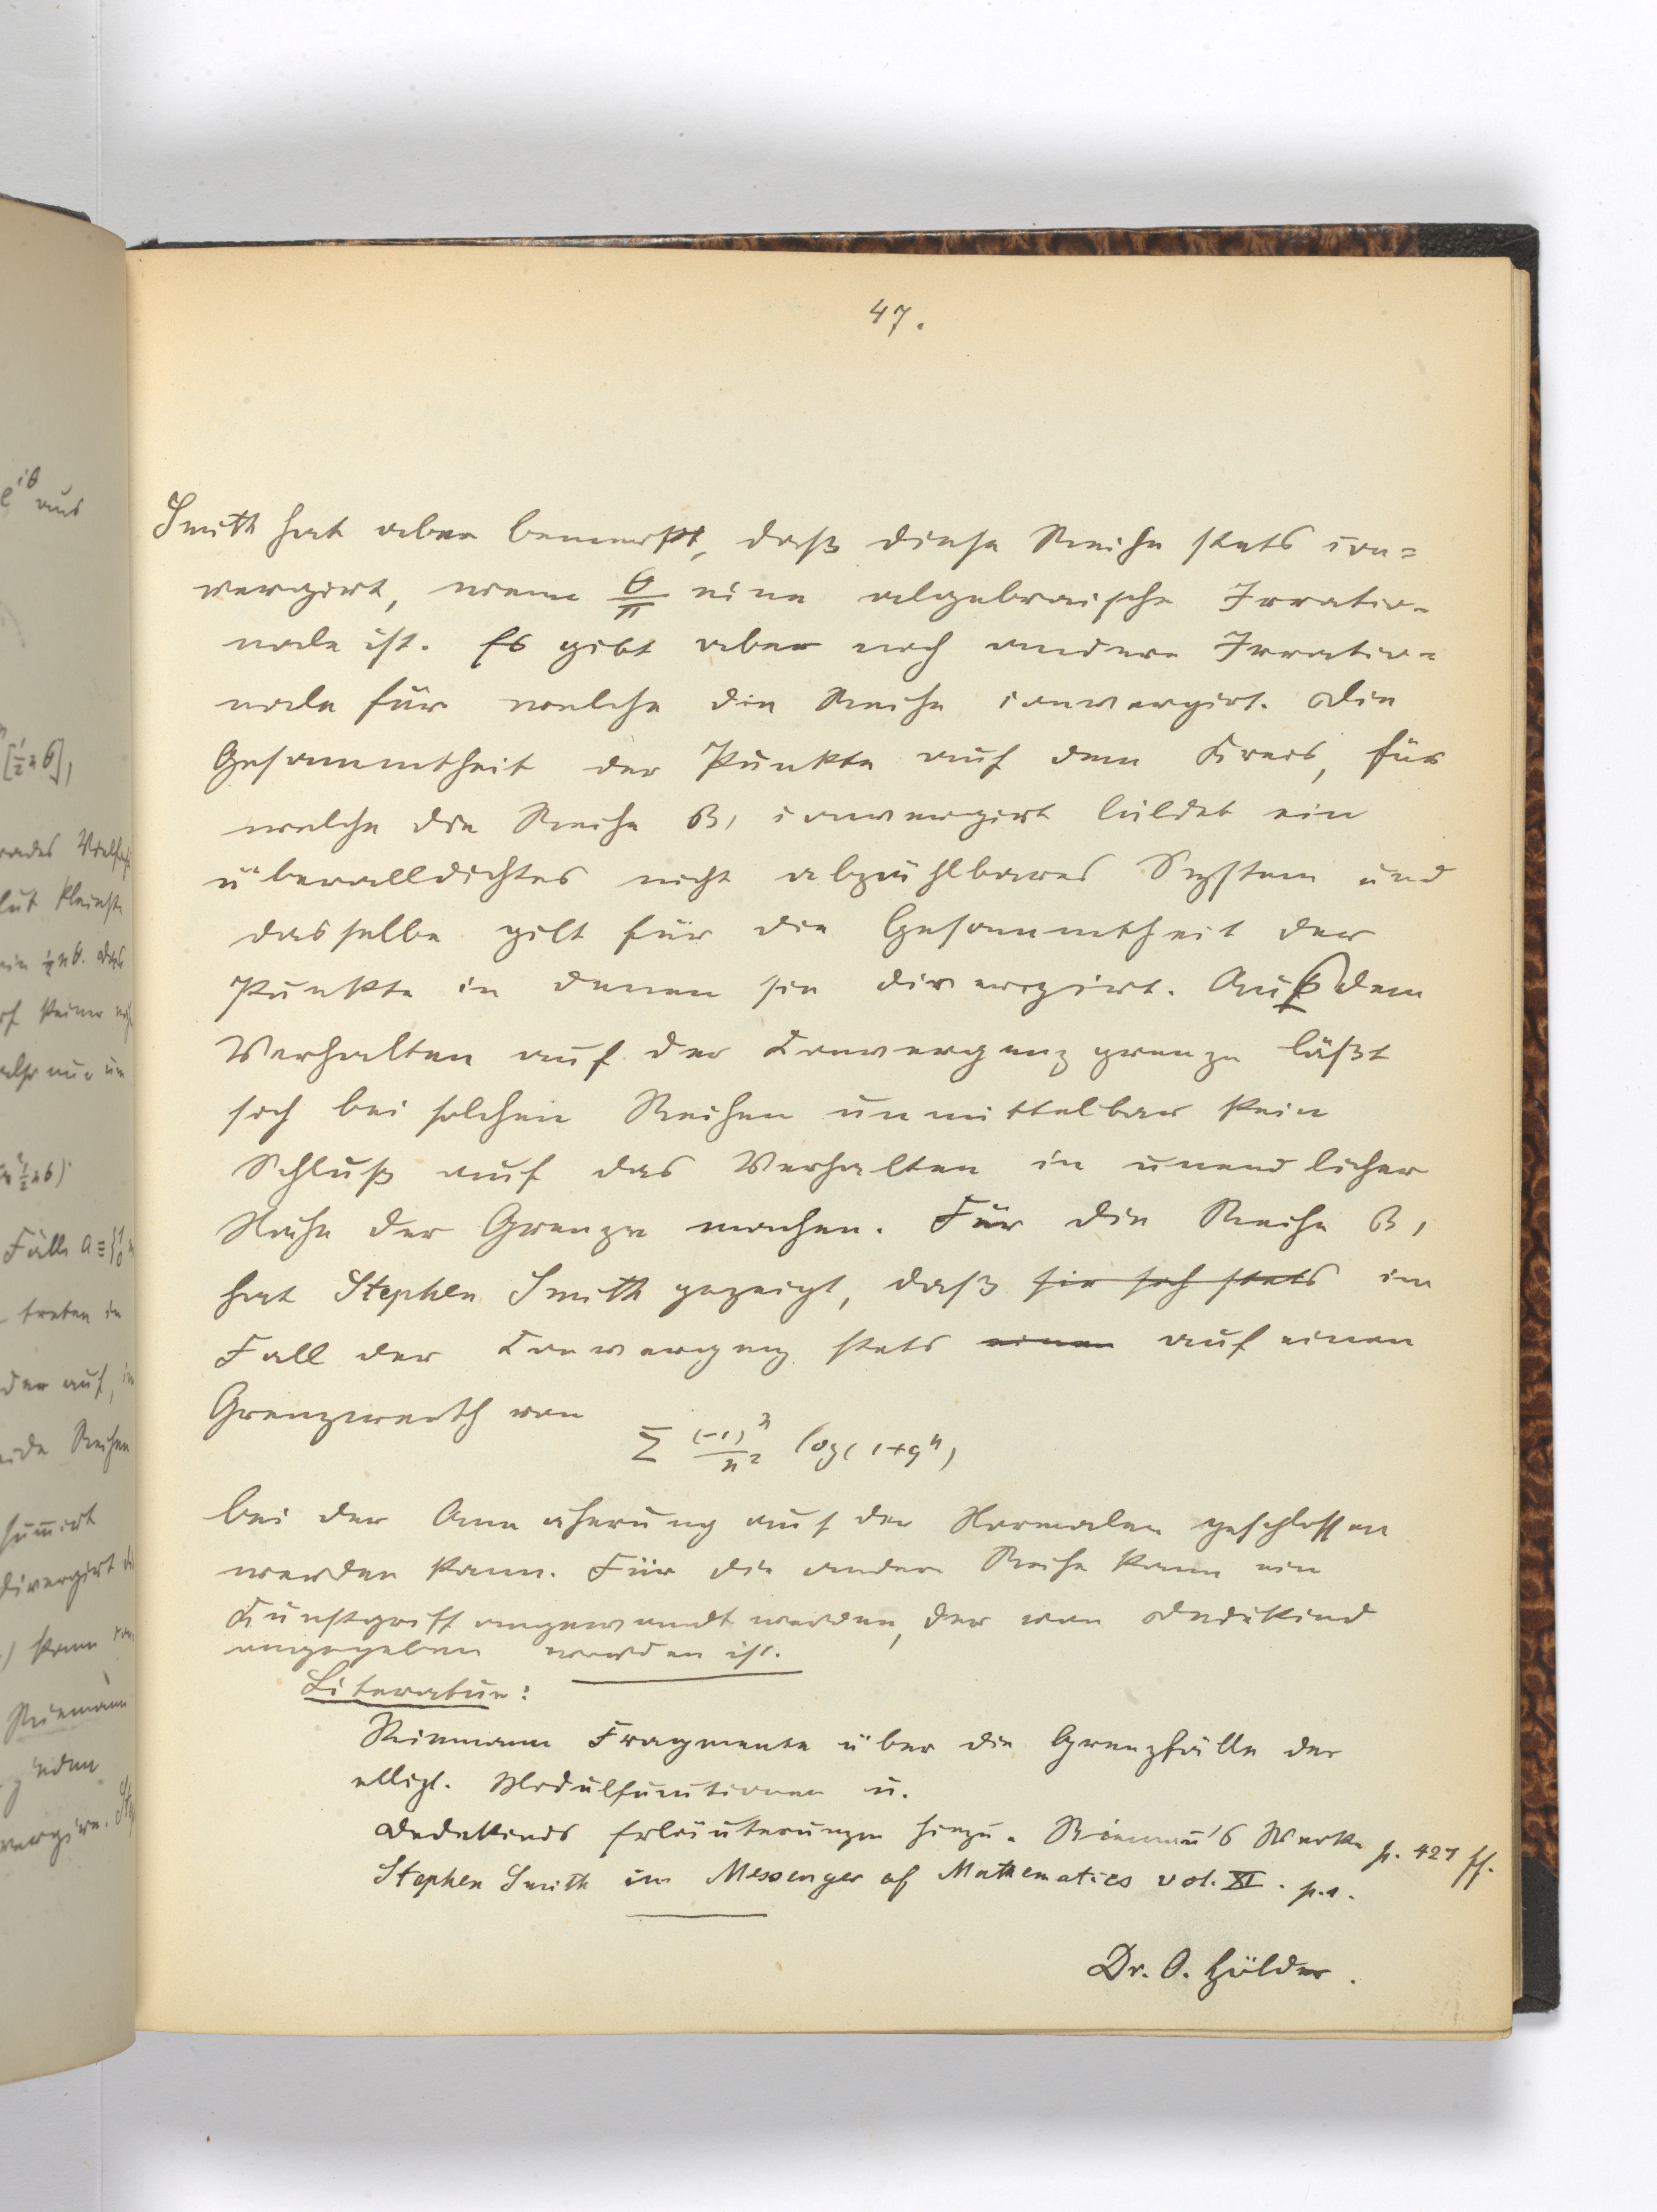 47.
Smith hat aber bemerkt, daß diese Reihe stets con=
vergirt, wenn θ/π eine algebraische Irratio=
nale ist. Es gibt aber noch andere Irratio=
nale für welche die Reihe convergirt. Die
Gesammtheit der Punkte auf dem Kreis, für
welche die Reihe B, convergirt bildet ein
überalldichtes nicht abzählbares System und
dasselbe gilt für die Gesammtheit der
Punkte in denen sie divergirt. Aus dem
Verhalten auf der Convergenzgrenze läßt
sich bei solchen Reihen unmittelbar kein
Schluß auf das Verhalten in unendlicher
Nähe der Grenze machen. Für die Reihe B,
hat Stephen Smith gezeigt, daß sie sich stets im
Fall der Convergenz stets einen auf einen
Grenzwerth von
Σ (-1)^n/n² log(1+q^n)
bei der Annäherung auf der Normalen geschlossen
werden kann. Für die andere Reihe kann ein
Kunstgriff angewandt werden, der von Dedekind
angegeben worden ist.
Literatur:
Riemann Fragmente über die Grenzfälle der
ellipt. Modulfunctionen u.
Dedekinds Erläuterungen hiezu. Riemann's Werke p. 427 ff.
Stephen Smith im Messenger of Mathematics vol. XI. p.1.
Dr. O. Hölder.
e^iθ aus
[½nθ],
rades Vielfach
lut kleinste
ein ½nθ. das
also nur um
Fälle a≡{1 0
treten in
der auf, in
ide Reihen
summirt
divergirt
) kann
Riemann